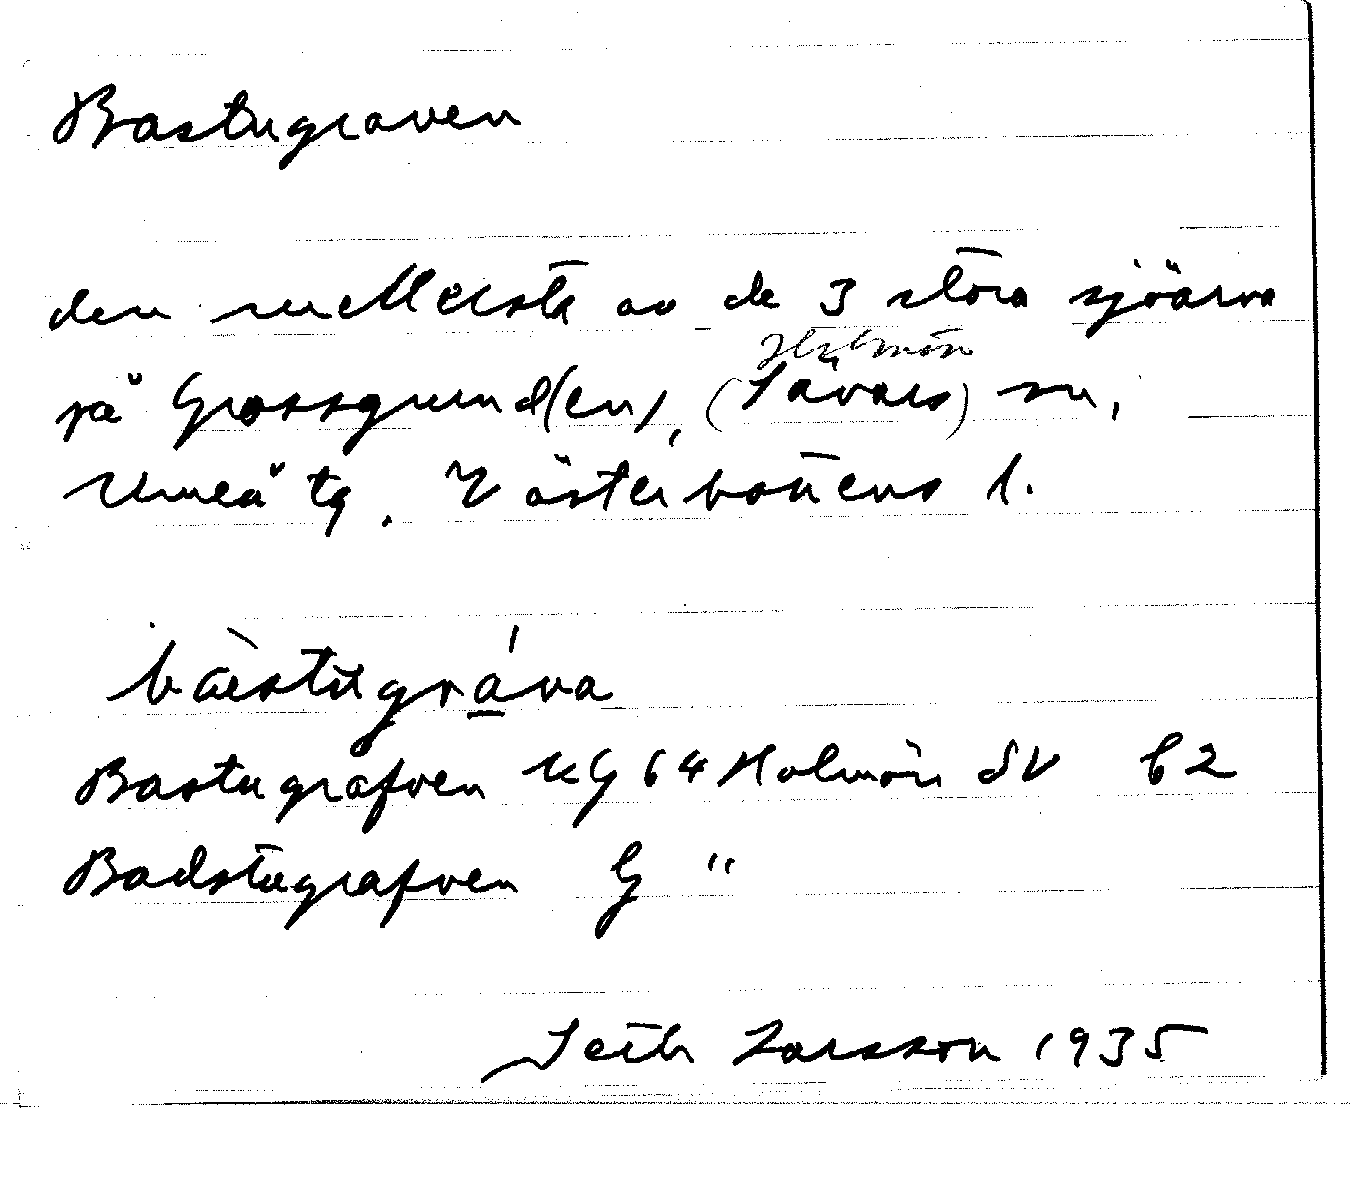 Bastugraven
den mellersta av de 3 stora sjöarna
Holmön
på Grossgrund(en), (Sävars) sn,
Umeå tg. Västerbottens l.
bàstugráva
Bastugrafven KG 64 Holmön SV b2
Badstugrafven G "
Seth Larsson 1935